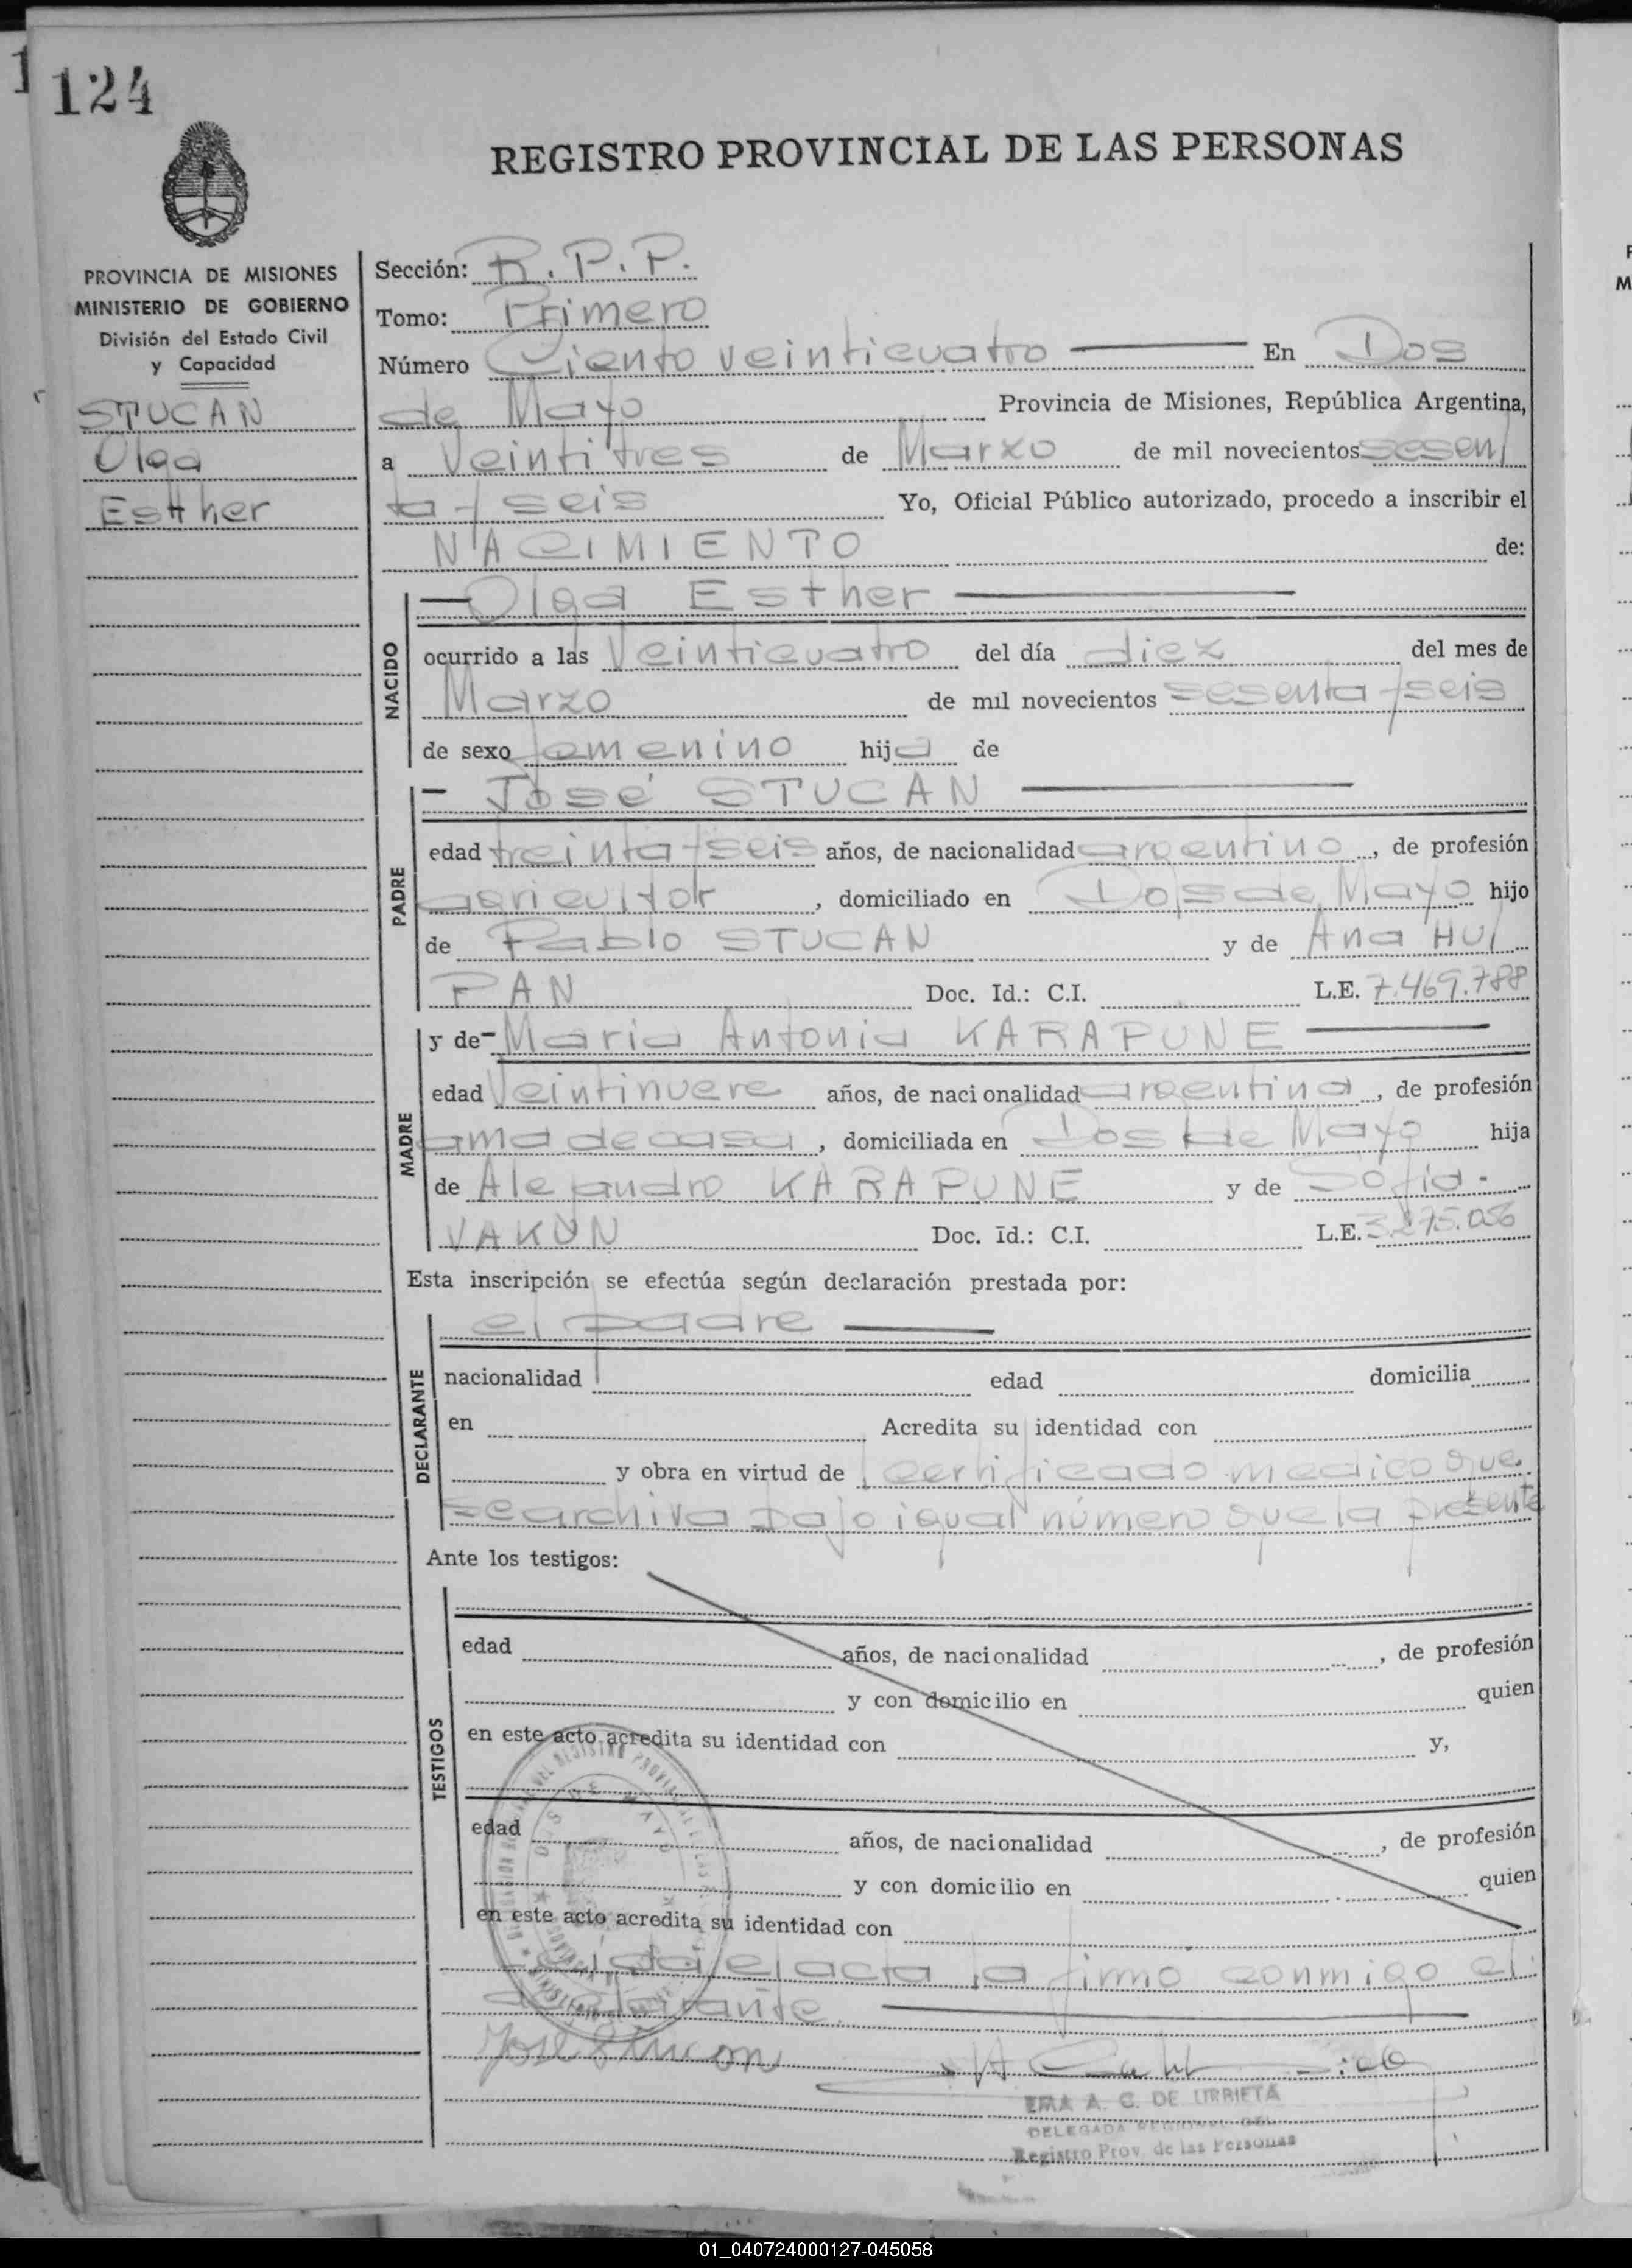 124
REGISTRO PROVINCIAL DE LAS PERSONAS
PROVINCIA DE MISIONES
MINISTERIO DE GOBIERNO
División del Estado Civil
y Capacidad
STUCAN
Olga
Esther
Sección: R. P. P.
Tomo: Primero
Número Ciento veinticuatro En Dos
de Mayo Provincia de Misiones, República Argentina,
a Veintitres de Marzo de mil novecientos sesen
ta y seis Yo, Oficial Público autorizado, procedo a inscribir el
NACIMIENTO de:
NACIDO
— Olga Esther —
ocurrido a las Veinticuatro del día diez del mes de
Marzo de mil novecientos sesenta y seis
de sexo femenino hija de
PADRE
— José STUCAN —
edad treinta y seis años, de nacionalidad argentino, de profesión
agricultor, domiciliado en Dos de Mayo hijo
de Pablo STUCAN y de Ana HU
PAN Doc. Id.: C.I. L.E. 7.469.788
MADRE
y de — Maria Antonia KARAPUNE —
edad Veintinueve años, de nacionalidad argentina, de profesión
ama de casa, domiciliada en Dos de Mayo hija
de Alejandro KARAPUNE y de Sofia
VAKUN Doc. Id.: C.I. L.E. 3.275.056
Esta inscripción se efectúa según declaración prestada por:
DECLARANTE
el padre —
nacionalidad edad domicilia
en Acredita su identidad con
y obra en virtud de certificado medico que
se archiva bajo igual número que la presente
Ante los testigos:
TESTIGOS
edad años, de nacionalidad , de profesión
y con domicilio en quien
en este acto acredita su identidad con y,
edad años, de nacionalidad , de profesión
y con domicilio en quien
en este acto acredita su identidad con
el acta la firmo conmigo el
declarante.
José Stucan
EMA A. C. DE URRIETA
DELEGADA REGIONAL DEL
Registro Prov. de las Personas
01_040724000127-045058